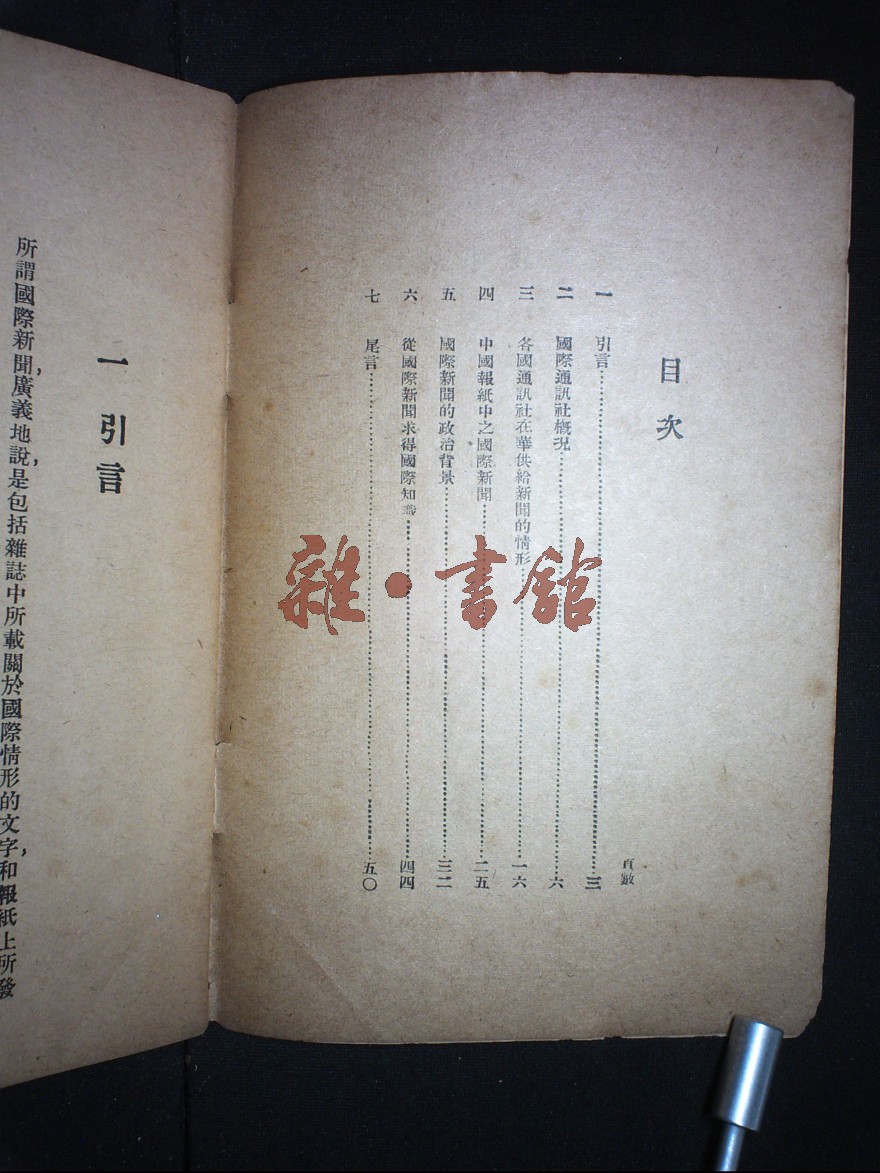 目次
頁數
一 引言 三
二 國際通訊社概況 六
三 各國通訊社在華供給新聞的情形 一六
四 中國報紙中之國際新聞 二五
五 國際新聞的政治背景 三二
六 從國際新聞求得國際知識 四四
七 尾言 五〇
雜·書館
一 引言
所謂國際新聞，廣義地說，是包括雜誌中所載關於國際情形的文字，和報紙上所發